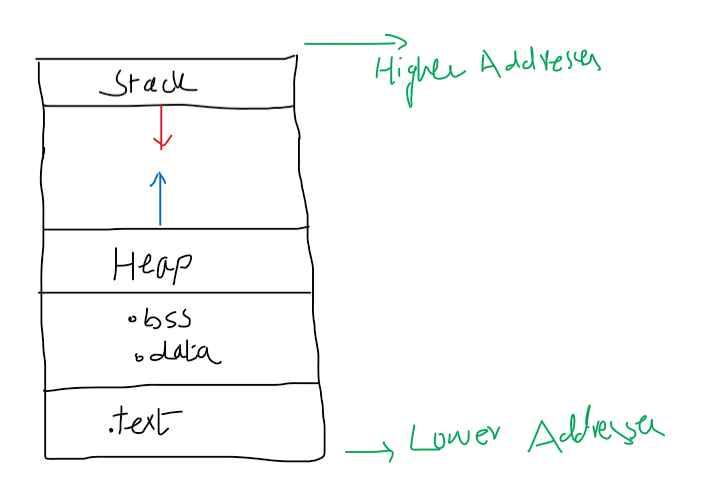 Stack
Higher Addresses
Heap
.bss
.data
.text
Lower Addresses